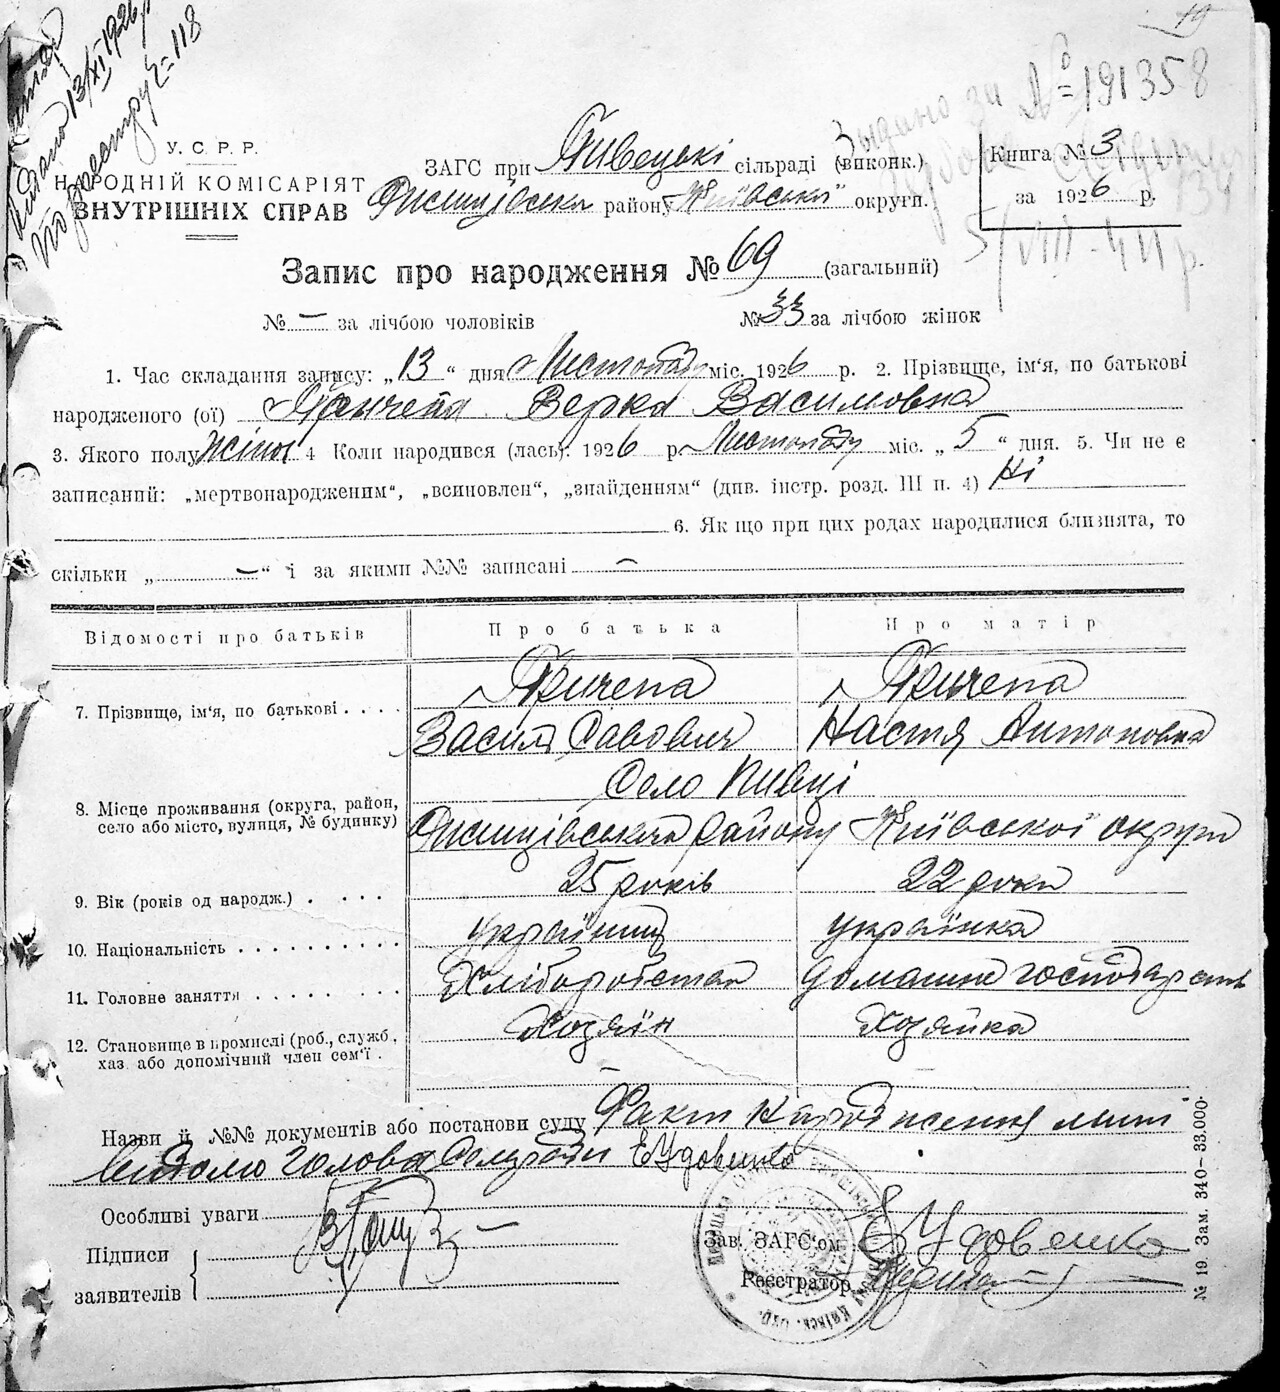 19
Видано 13/XI 1926 р.
по реестру № 118
Выдано за № 191358
5/VIII-41 р.
У. С. Р. Р.
НАРОДНІЙ КОМІСАРІЯТ
ВНУТРІШНІХ СПРАВ
ЗАГС при Пивецькі сільраді (виконк.)
району Київської округи.
Книга № 3
за 1926 р.
Запис про народження № 69 (загальний)
№ – за лічбою чоловіків № 33 за лічбою жінок
1. Час складання запису: „13“ дня Листопаду міс. 1926 р. 2. Прізвище, ім'я, по батькові
народженого (ої) Причепа Верка Василовна
3. Якого полу жіноч 4 Коли народився (лась): 1926 р Листопаду міс. „5“ дня. 5. Чи не є
записаний: „мертвонародженим“, „всиновлен“, „знайденням“ (див. інстр. розд. III п. 4) Ні
6. Як що при цих родах народилися близнята, то
скільки „ – “ і за якими №№ записані –
Відомості про батьків Про батька Про матір
7. Прізвище, ім'я, по батькові . . . . Причепа Причепа
Василь Савович Настя Антоновна
8. Місце проживання (округа, район, село або місто, вулиця, № будинку) Село Пивці
району Київської округи
9. Вік (років од народж.) . . . . 25 років 22 роки
10. Національність . . . . . . . . . . українець українка
11. Головне заняття . . . . . . . Хліборобство домашнє господарств
12. Становище в промислі (роб., служб., хаз. або допомічний член сем'ї . Хозяїн Хозяйка
–
Назви й №№ документів або постанови суду Факт народження мині
відомо Голова Сельради ЕУдовенко
Особливі уваги –
Підписи
заявителів
Зав. ЗАГС'ом ЕУдовенко
Реєстратор
№ 19. Зам. 340–33.000.